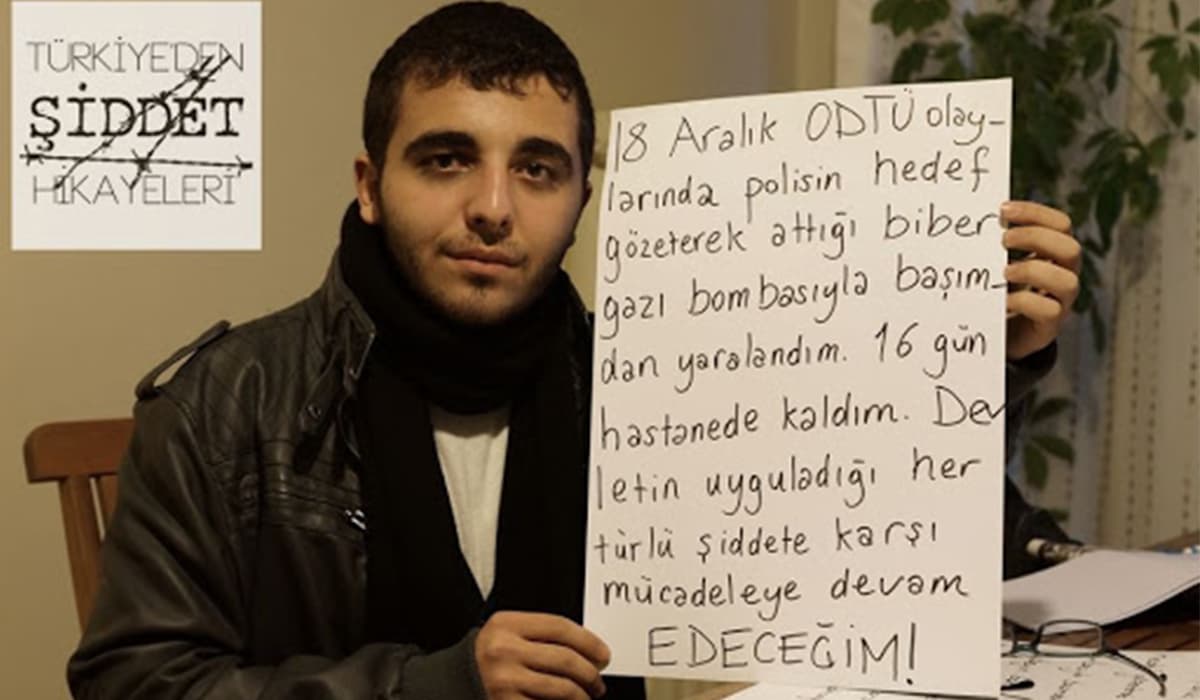 TÜRKİYE'DEN
ŞİDDET
HİKAYELERİ
18 Aralık ODTÜ olay-
larında polisin hedef
gözeterek attığı biber
gazı bombasıyla başım-
dan yaralandım. 16 gün
hastanede kaldım. Dev
letin uyguladığı her
türlü şiddete karşı
mücadeleye devam
EDECEĞİM!